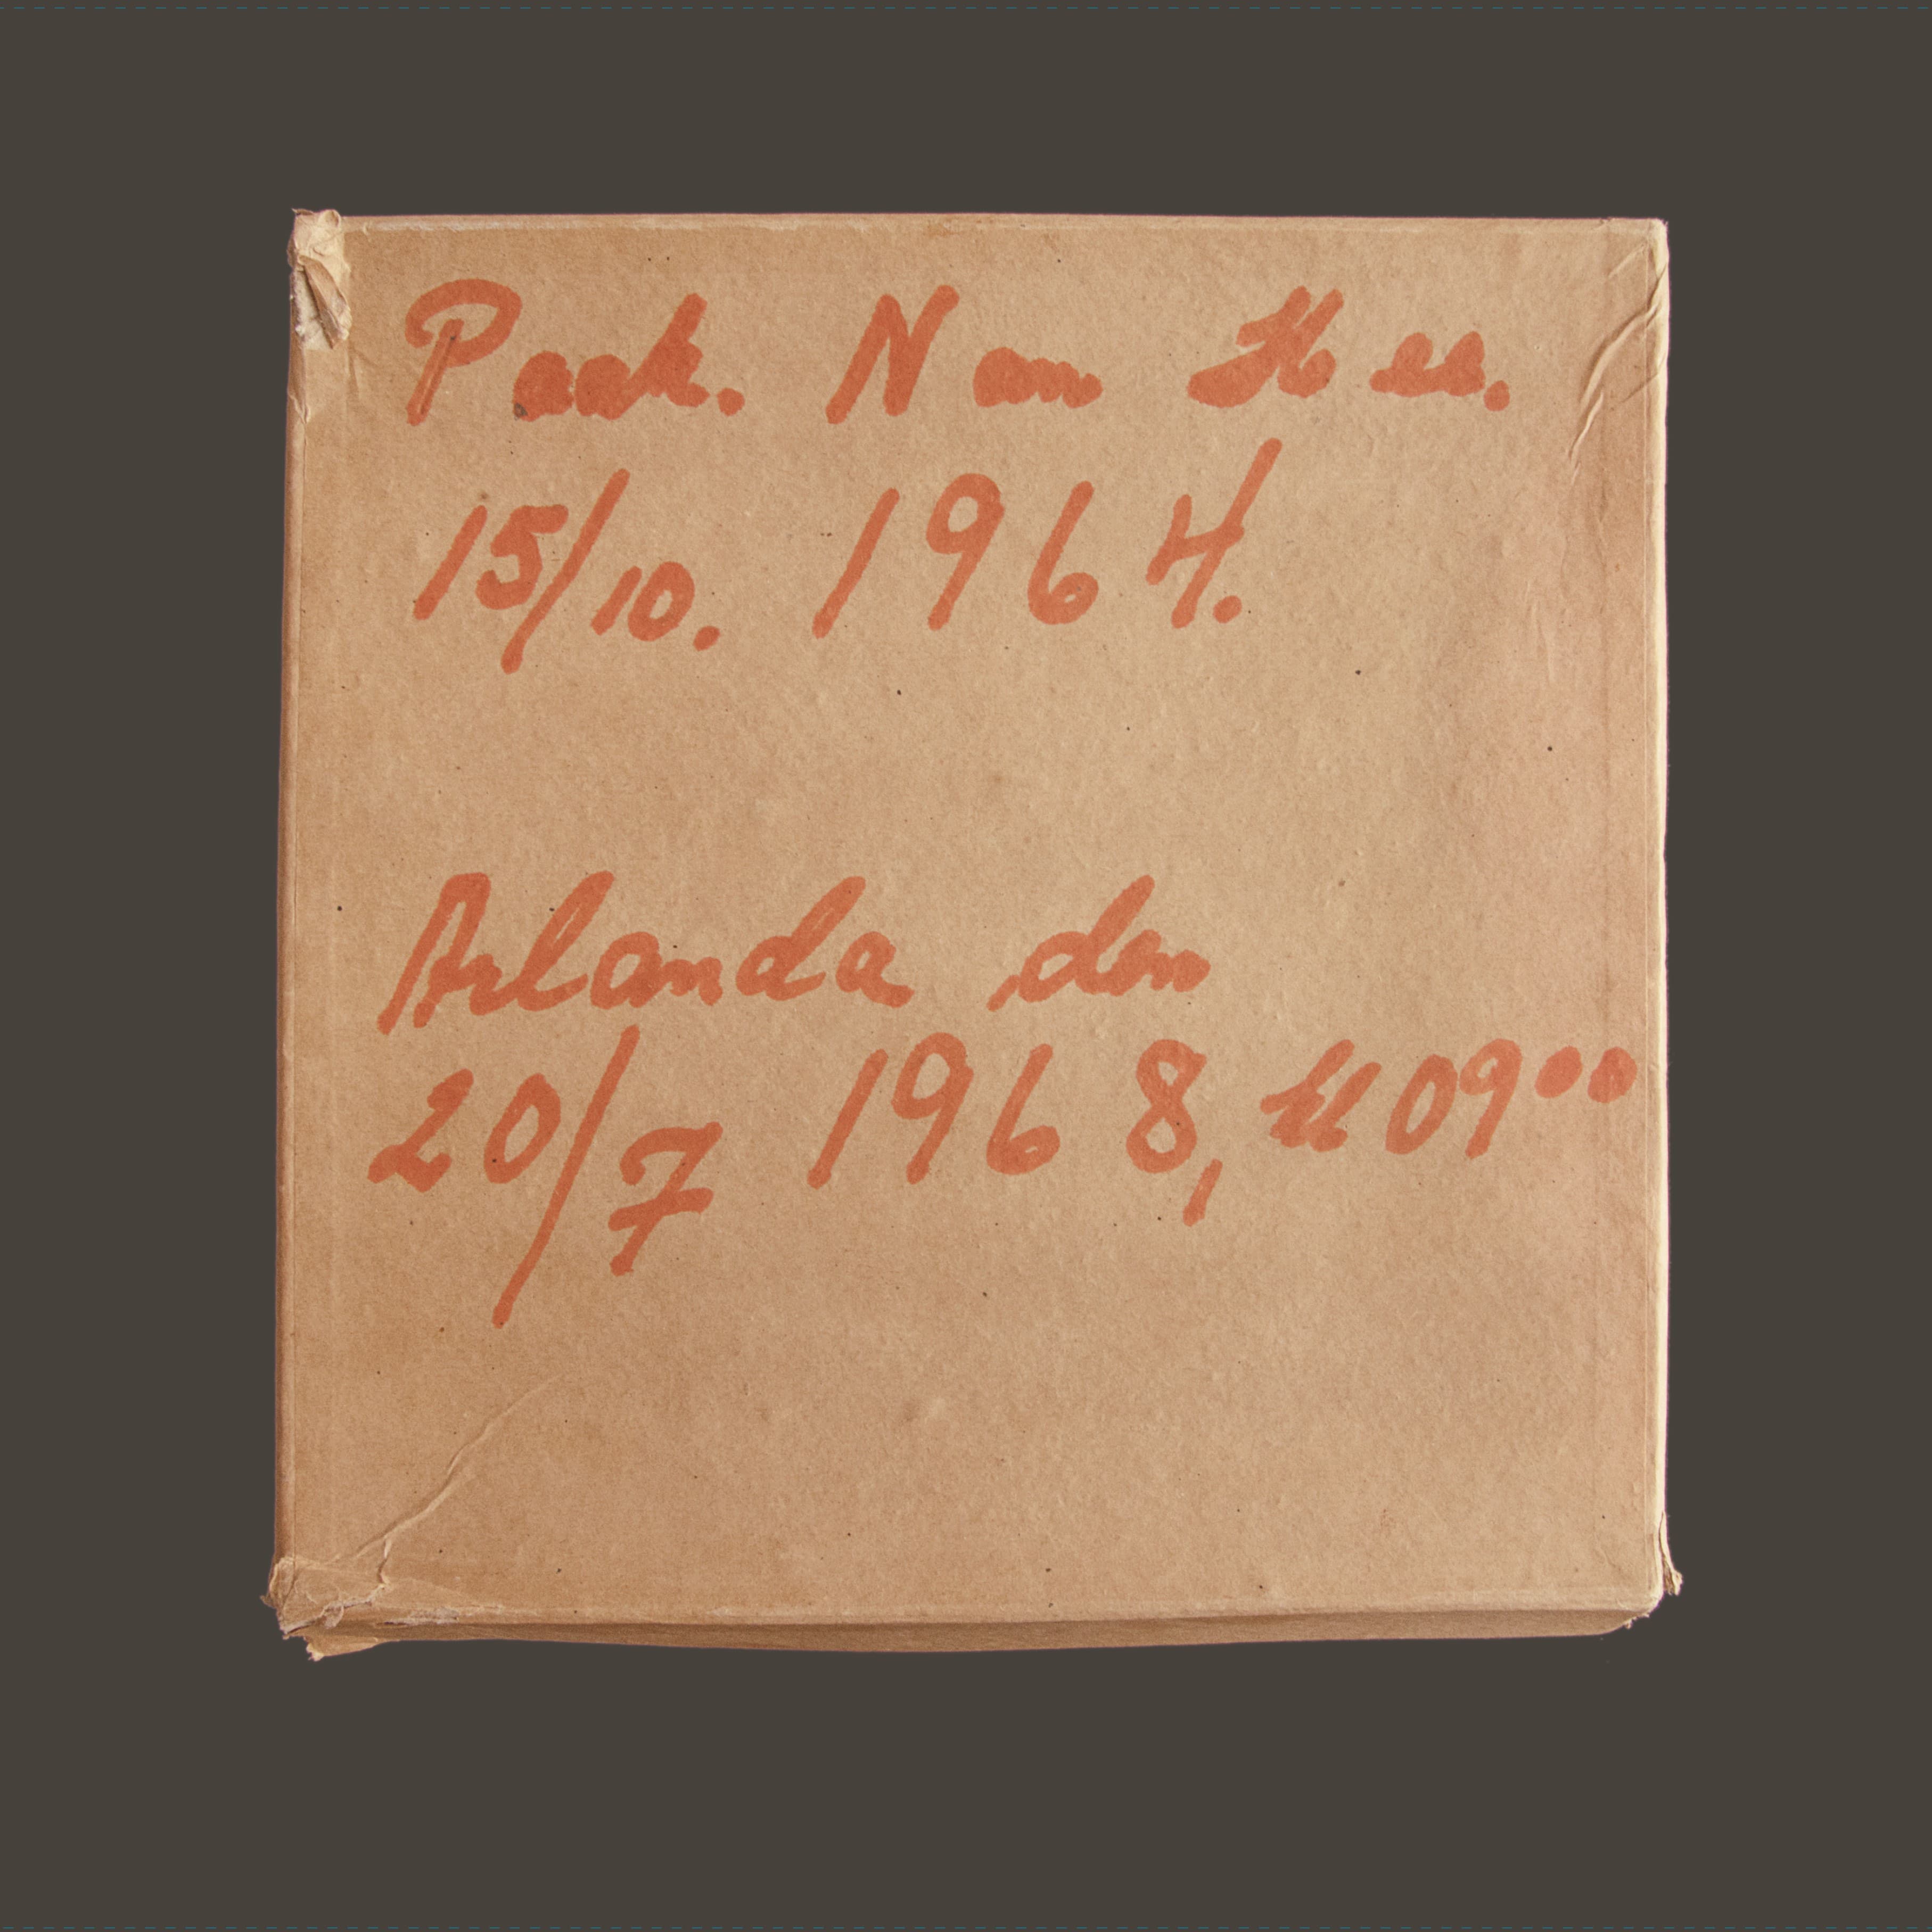 Paak. Nam Kee.
15/10. 1964.
Arlanda den
20/7 1968, kl 09⁰⁰